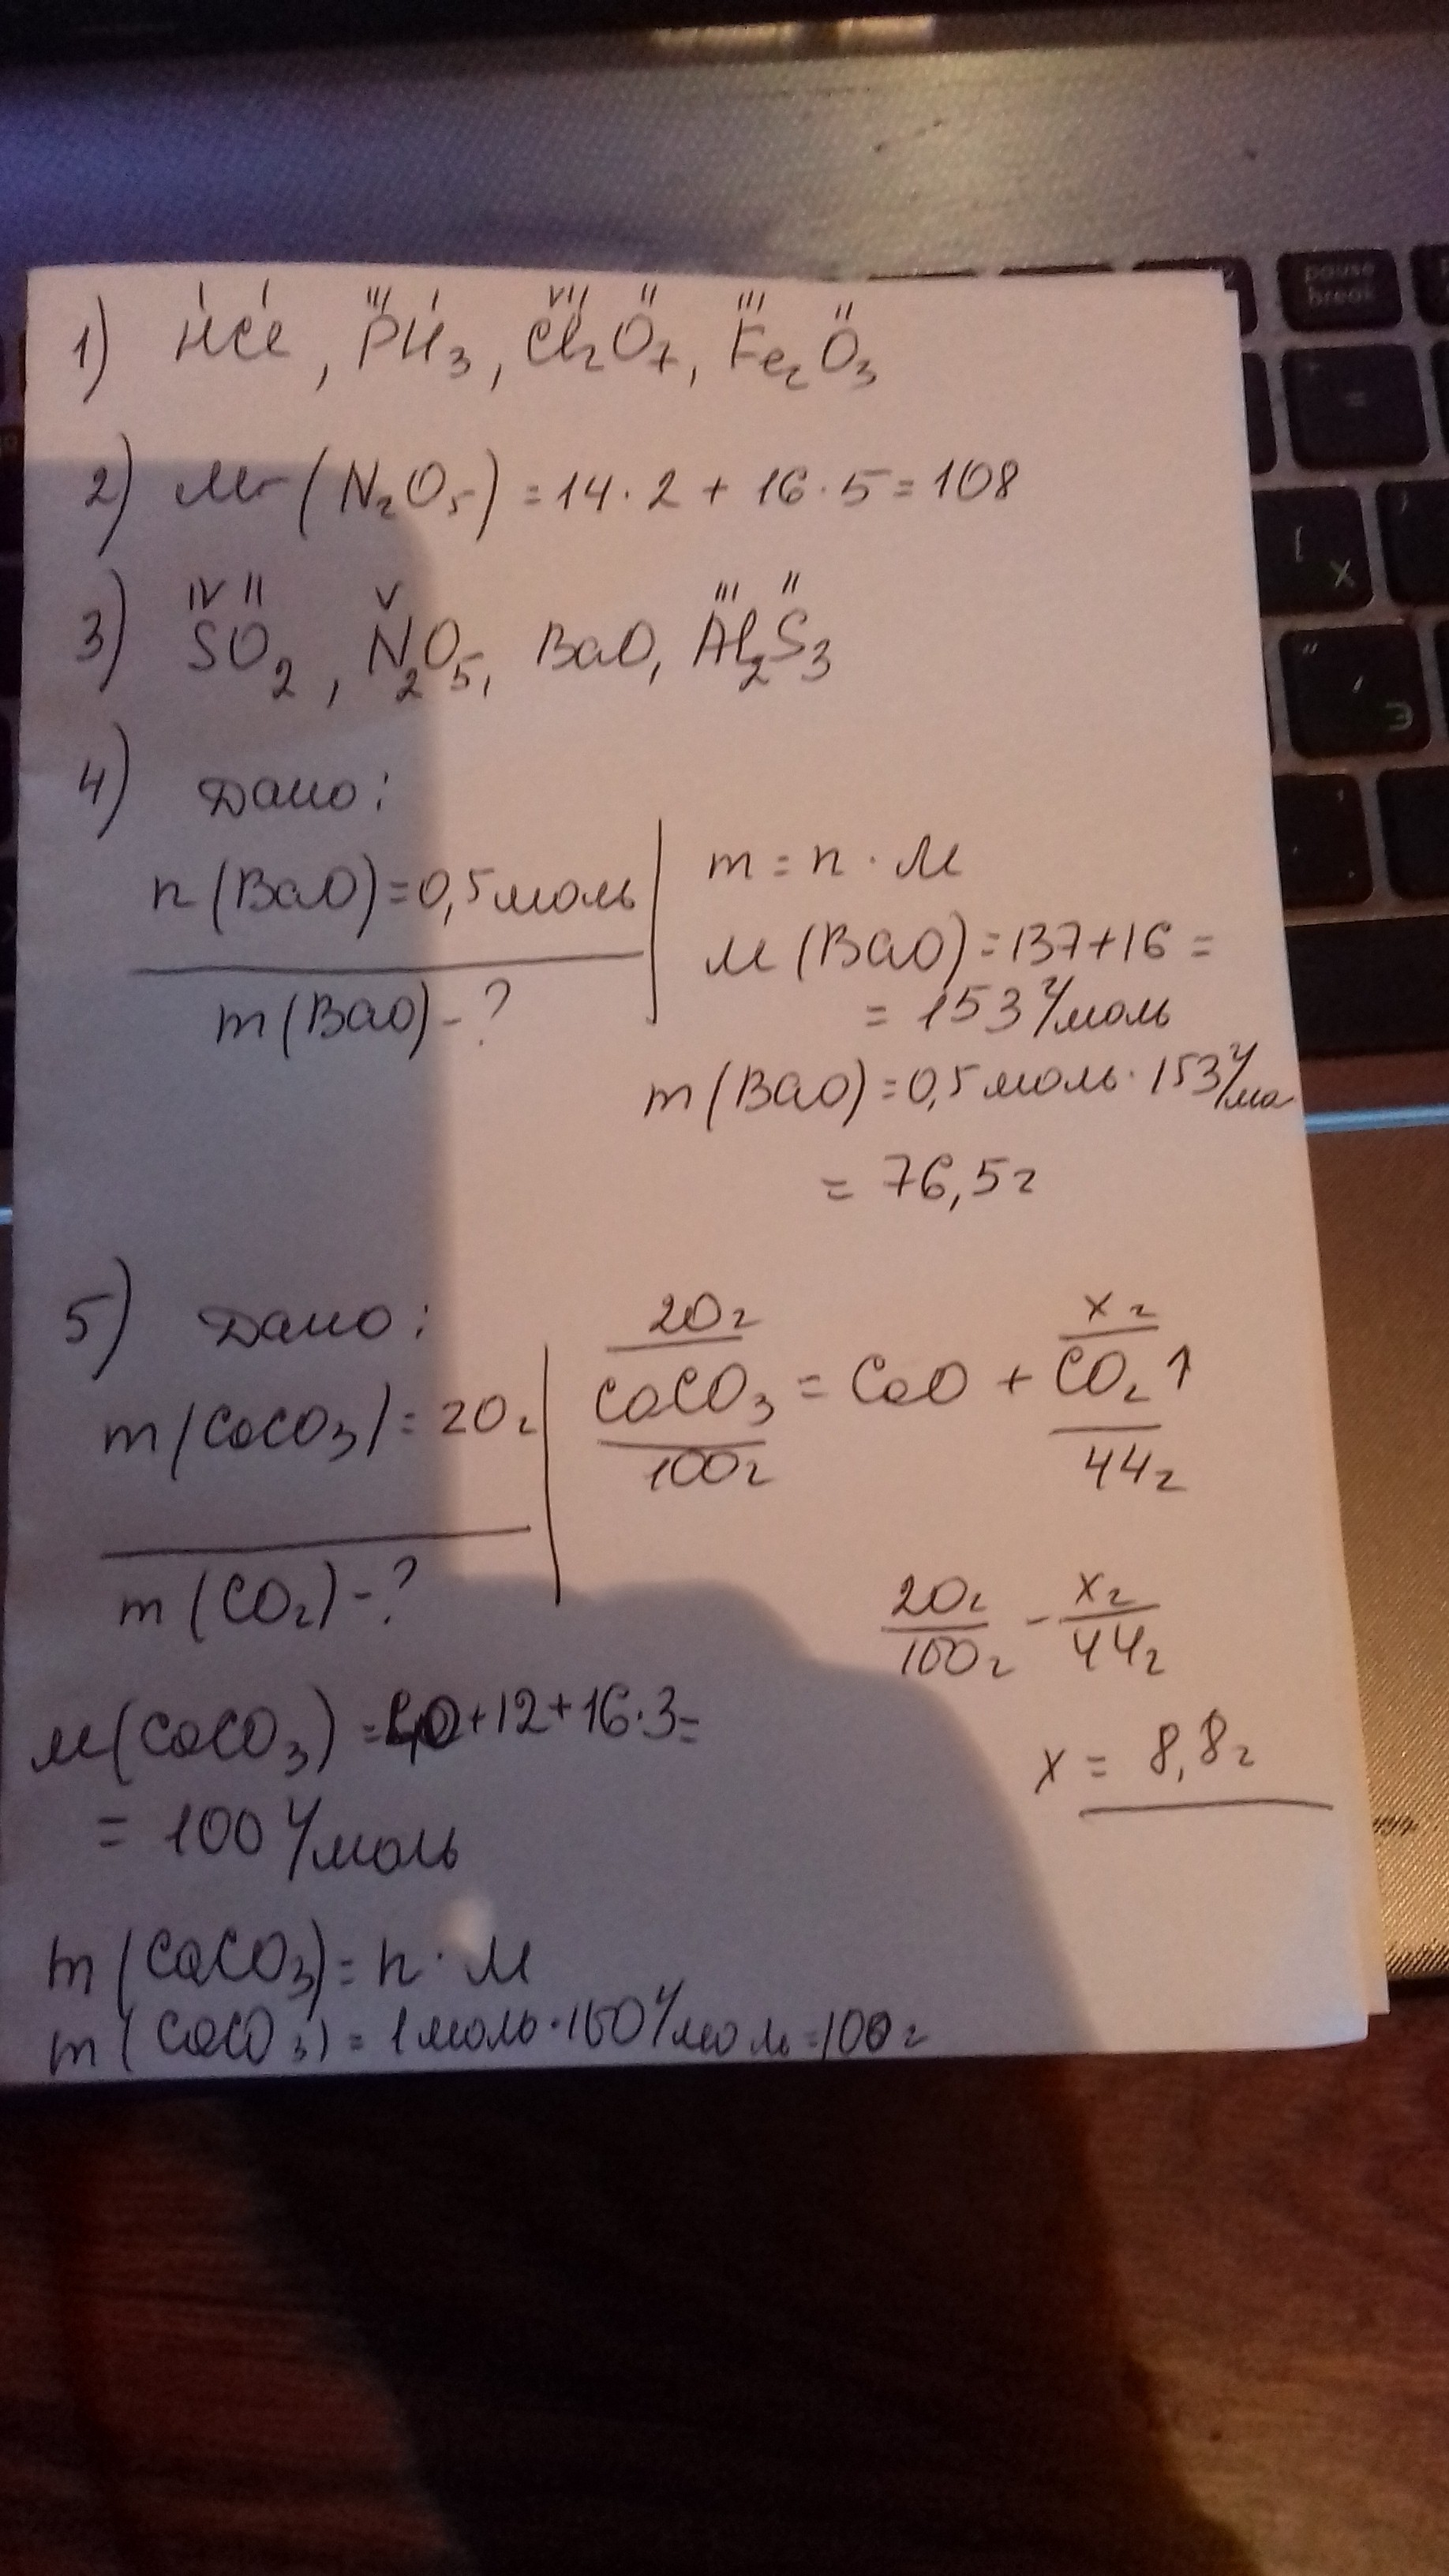 pause
break
I I III I VII II III II
1) HCl, PH3, Cl2O7, Fe2O3
2) Mr (N2O5) = 14 · 2 + 16 · 5 = 108
IV II V III II
3) SO2, N2O5, BaO, Al2S3
4) Дано:
n (BaO) = 0,5 моль
m (BaO) - ?
m = n · M
M (BaO) = 137 + 16 =
= 153 г/моль
m (BaO) = 0,5 моль · 153 г/мо
= 76,5 г
5) Дано:
m (CaCO3) = 20 г
m (CO2) - ?
20 г x г
CaCO3 = CaO + CO2 ↑
100 г 44 г
20 г x г
100 г - 44 г
x = 8,8 г
M (CaCO3) = 40 + 12 + 16 · 3 =
= 100 г/моль
m (CaCO3) = n · M
m (CaCO3) = 1 моль · 100 г/моль = 100 г
+
=
[
Х
"
'
Э